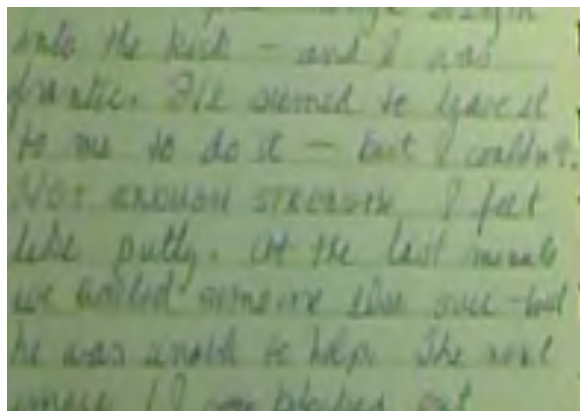 strength
into the kick - and I was
frantic. He seemed to leave it
to me to do it - but I couldn't.
NOT ENOUGH STRENGTH I felt
like putty. At the last minute
we called someone else over - but
he was unable to help. The next
I